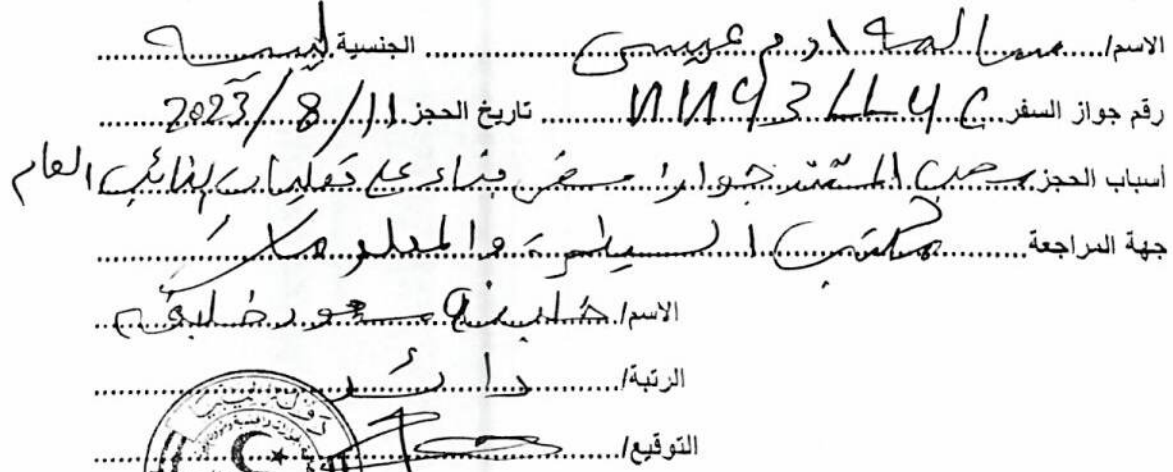 الاسم/ سالمة ادم عيسى الجنسية ليبيه
رقم جواز السفر تاريخ الحجز 2023/8/11
أسباب الحجز سحب المستند جواز سفر بناء على تعليمات النائب العام
جهة المراجعة مكتب السيطرة والمعلومات
الاسم/ خليفة مسعود خليفة
الرتبة/ رائد
التوقيع/